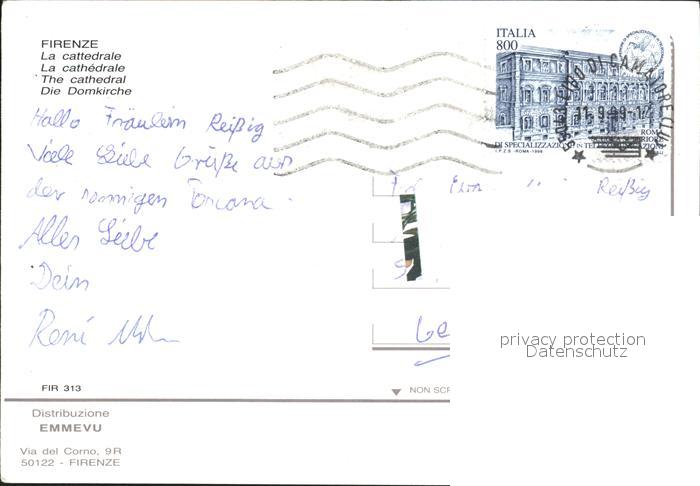 FIRENZE
La cattedrale
La cathédrale
The cathedral
Die Domkirche
ITALIA
800
LIDO DI CAMAIORE
11.9.99-12
ROMA
DI SPECIALIZZAZIONE IN TELECOMUNICAZIONI
I.P.Z.S. - ROMA - 1998
Hallo Fräulein Reißig
Viele Liebe Grüße aus
der sonnigen Toscana.
Alles Liebe
Dein
René
Reißig
privacy protection
Datenschutz
FIR 313
NON SCR
Distribuzione
EMMEVU
Via del Corno, 9R
50122 - FIRENZE